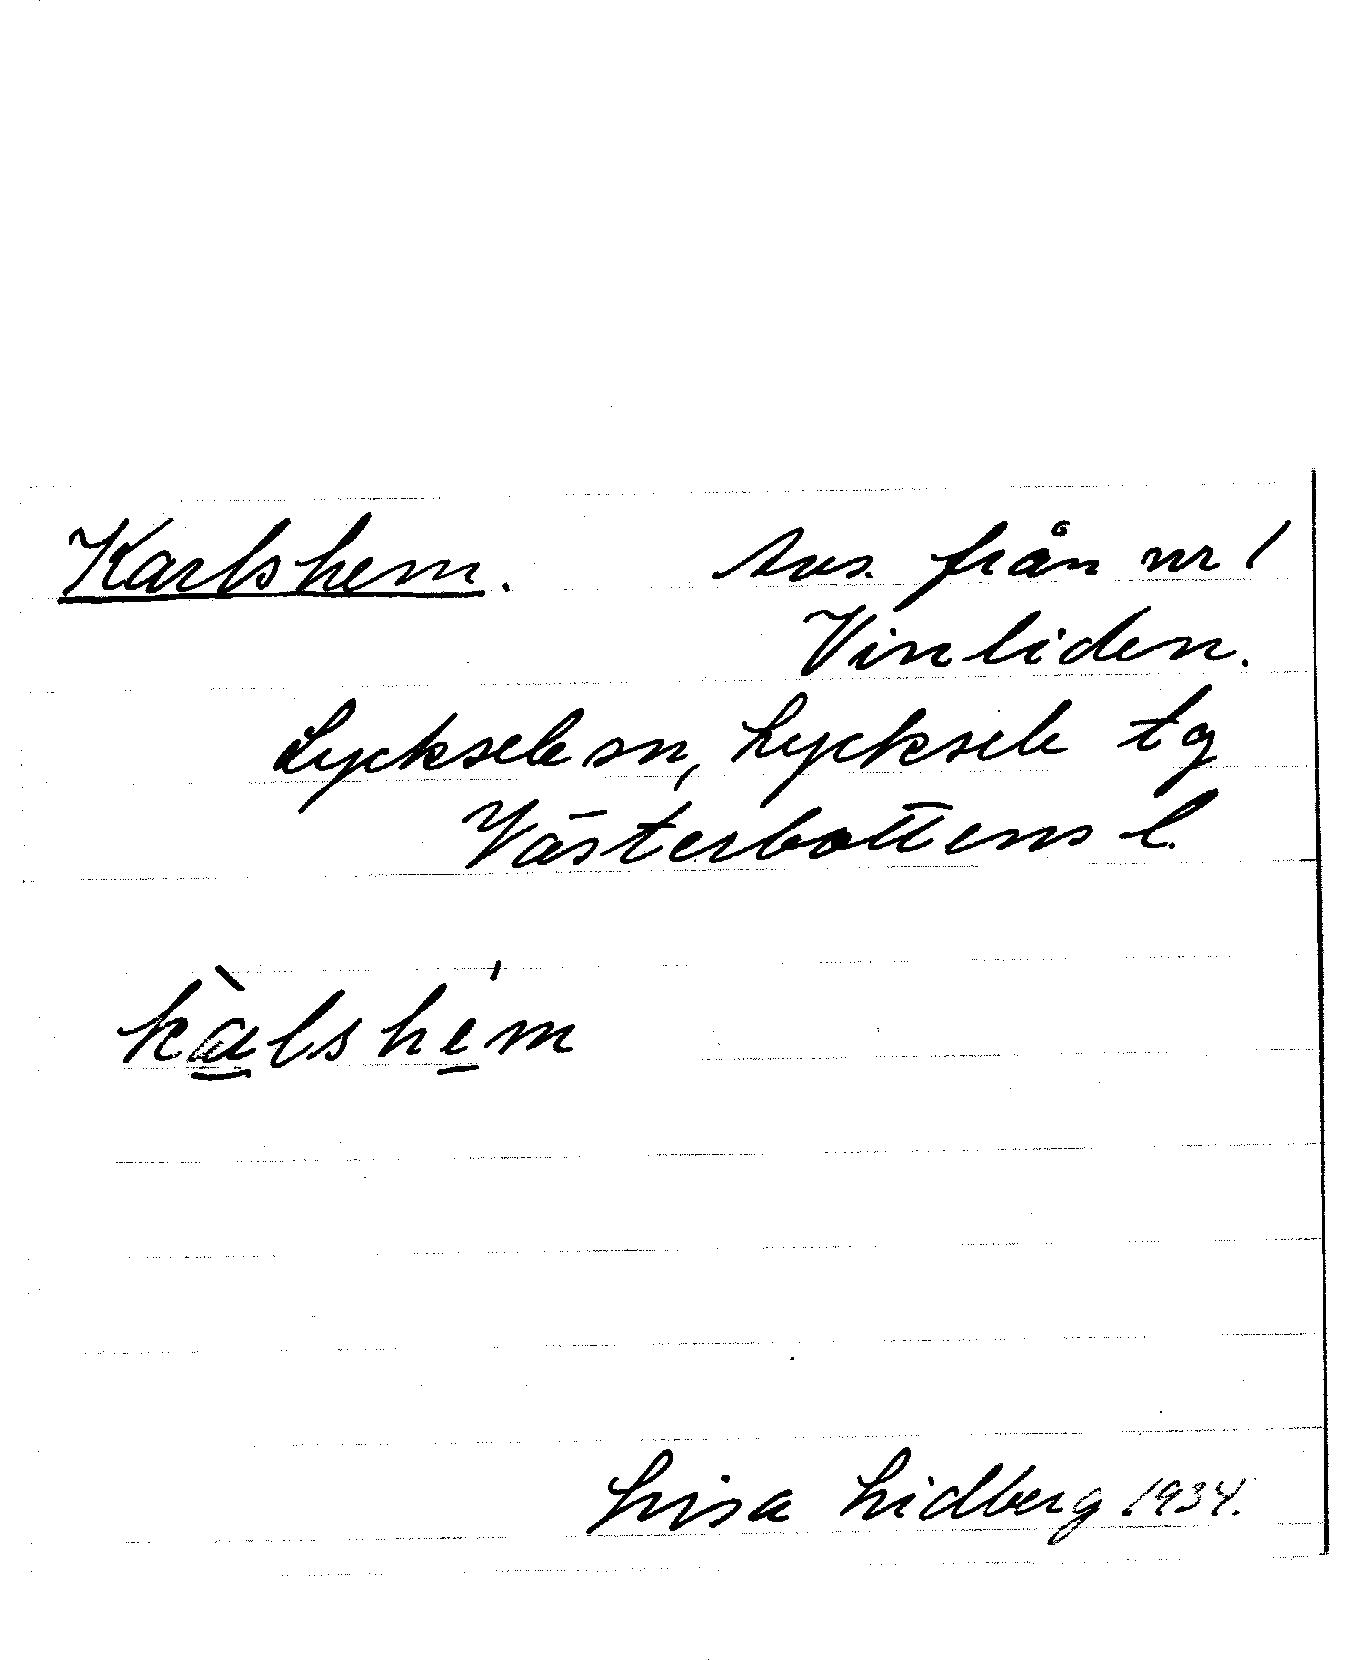 Karlshem. Avs. från nr 1
Vinliden.
Lycksele sn, Lycksele tg
Västerbottens l.
kàlshém
Lisa Lidberg 1934.